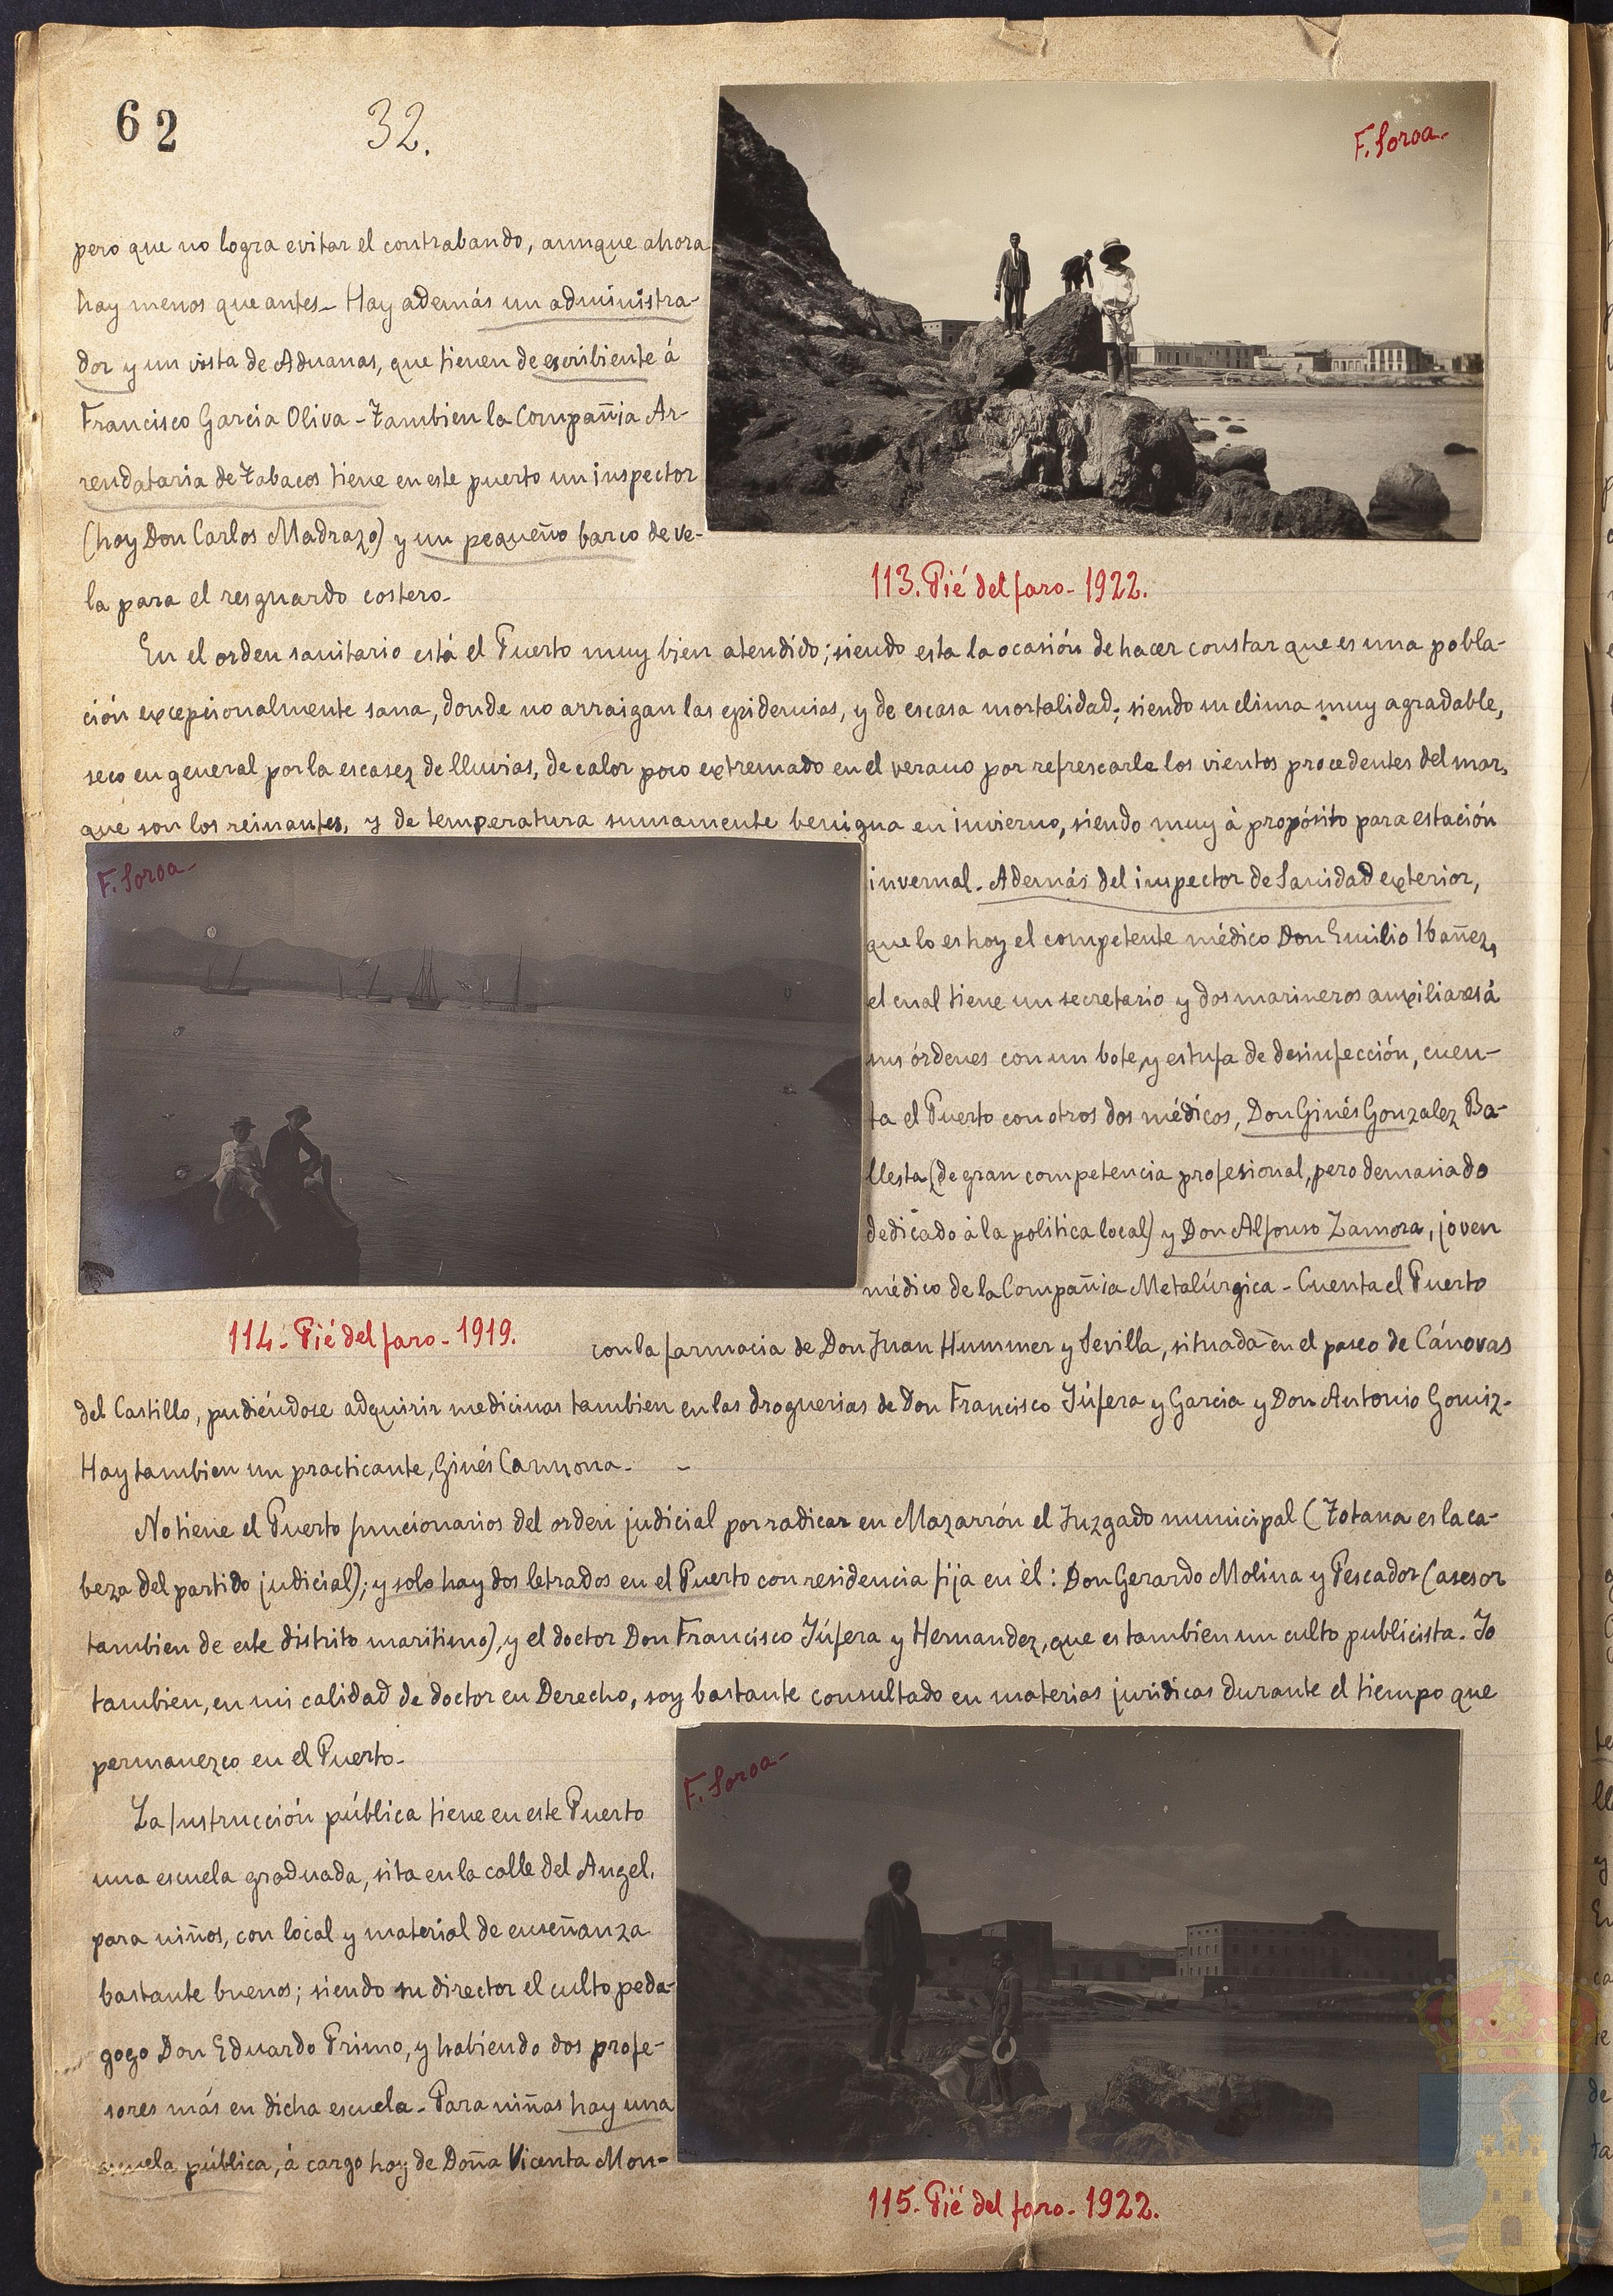 62
32.
F. Soroa.
pero que no logra evitar el contrabando, aunque ahora
hay menos que antes- Hay además un administra-
dor y un vista de Aduanas, que tienen de escribiente á
Francisco Garcia Oliva - Tambien la Compañia Ar-
rendataria de Tabacos tiene en este puerto un inspector
(hoy Don Carlos Madrazo) y un pequeño barco de ve-
la para el resguardo costero-
113. Pié del faro- 1922.
En el orden sanitario está el Puerto muy bien atendido; siendo esta la ocasión de hacer constar que es una pobla-
ción excepcionalmente sana, donde no arraigan las epidemias, y de escasa mortalidad; siendo su clima muy agradable,
seco en general por la escasez de lluvias, de calor poco extremado en el verano por refrescarle los vientos procedentes del mar,
que son los reinantes, y de temperatura sumamente benigna en invierno, siendo muy á propósito para estación
F. Soroa-
invernal. Además del inspector de Sanidad exterior,
que lo es hoy el competente médico Don Emilio Ibañez,
el cual tiene un secretario y dos marineros auxiliares á
sus órdenes con un bote, y estufa de desinfección, cuen-
ta el Puerto con otros dos médicos, Don Ginés Gonzalez Ba-
llesta (de gran competencia profesional, pero demasiado
dedicado á la politica local) y Don Alfonso Zamora, joven
médico de la Compañia Metalúrgica - Cuenta el Puerto
114- Pié del faro- 1919.
con la farmacia de Don Juan Hummer y Sevilla, situada en el paseo de Cánovas
del Castillo, pudiéndose adquirir medicinas tambien en las droguerias de Don Francisco Júfera y Garcia y Don Antonio Gomiz-
Hay tambien un practicante, Ginés Carmona. -
No tiene el Puerto funcionarios del orden judicial por radicar en Mazarrón el Juzgado municipal (Totana es la ca-
beza del partido judicial); y solo hay dos letrados en el Puerto con residencia fija en él: Don Gerardo Molina y Pescador (asesor
tambien de este distrito maritimo), y el doctor Don Francisco Júfera y Hernandez, que es tambien un culto publicista. Yo
tambien, en mi calidad de doctor en Derecho, soy bastante consultado en materias juridicas durante el tiempo que
permanezco en el Puerto-
F. Soroa-
La Instrucción pública tiene en este Puerto
una escuela graduada, sita en la calle del Angel,
para niños, con local y material de enseñanza
bastante buenos; siendo su director el culto peda-
gogo Don Eduardo Primo, y habiendo dos profe-
sores más en dicha escuela- Para niñas hay una
escuela pública, á cargo hoy de Doña Vicenta Mon-
115. Pié del faro- 1922.